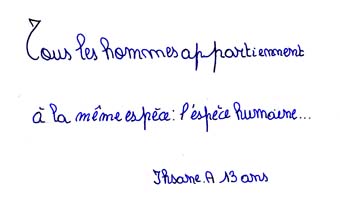 Tous les hommes appartiennent
à la même espèce: l'éspèce humaine...
Ihsane.A 13 ans